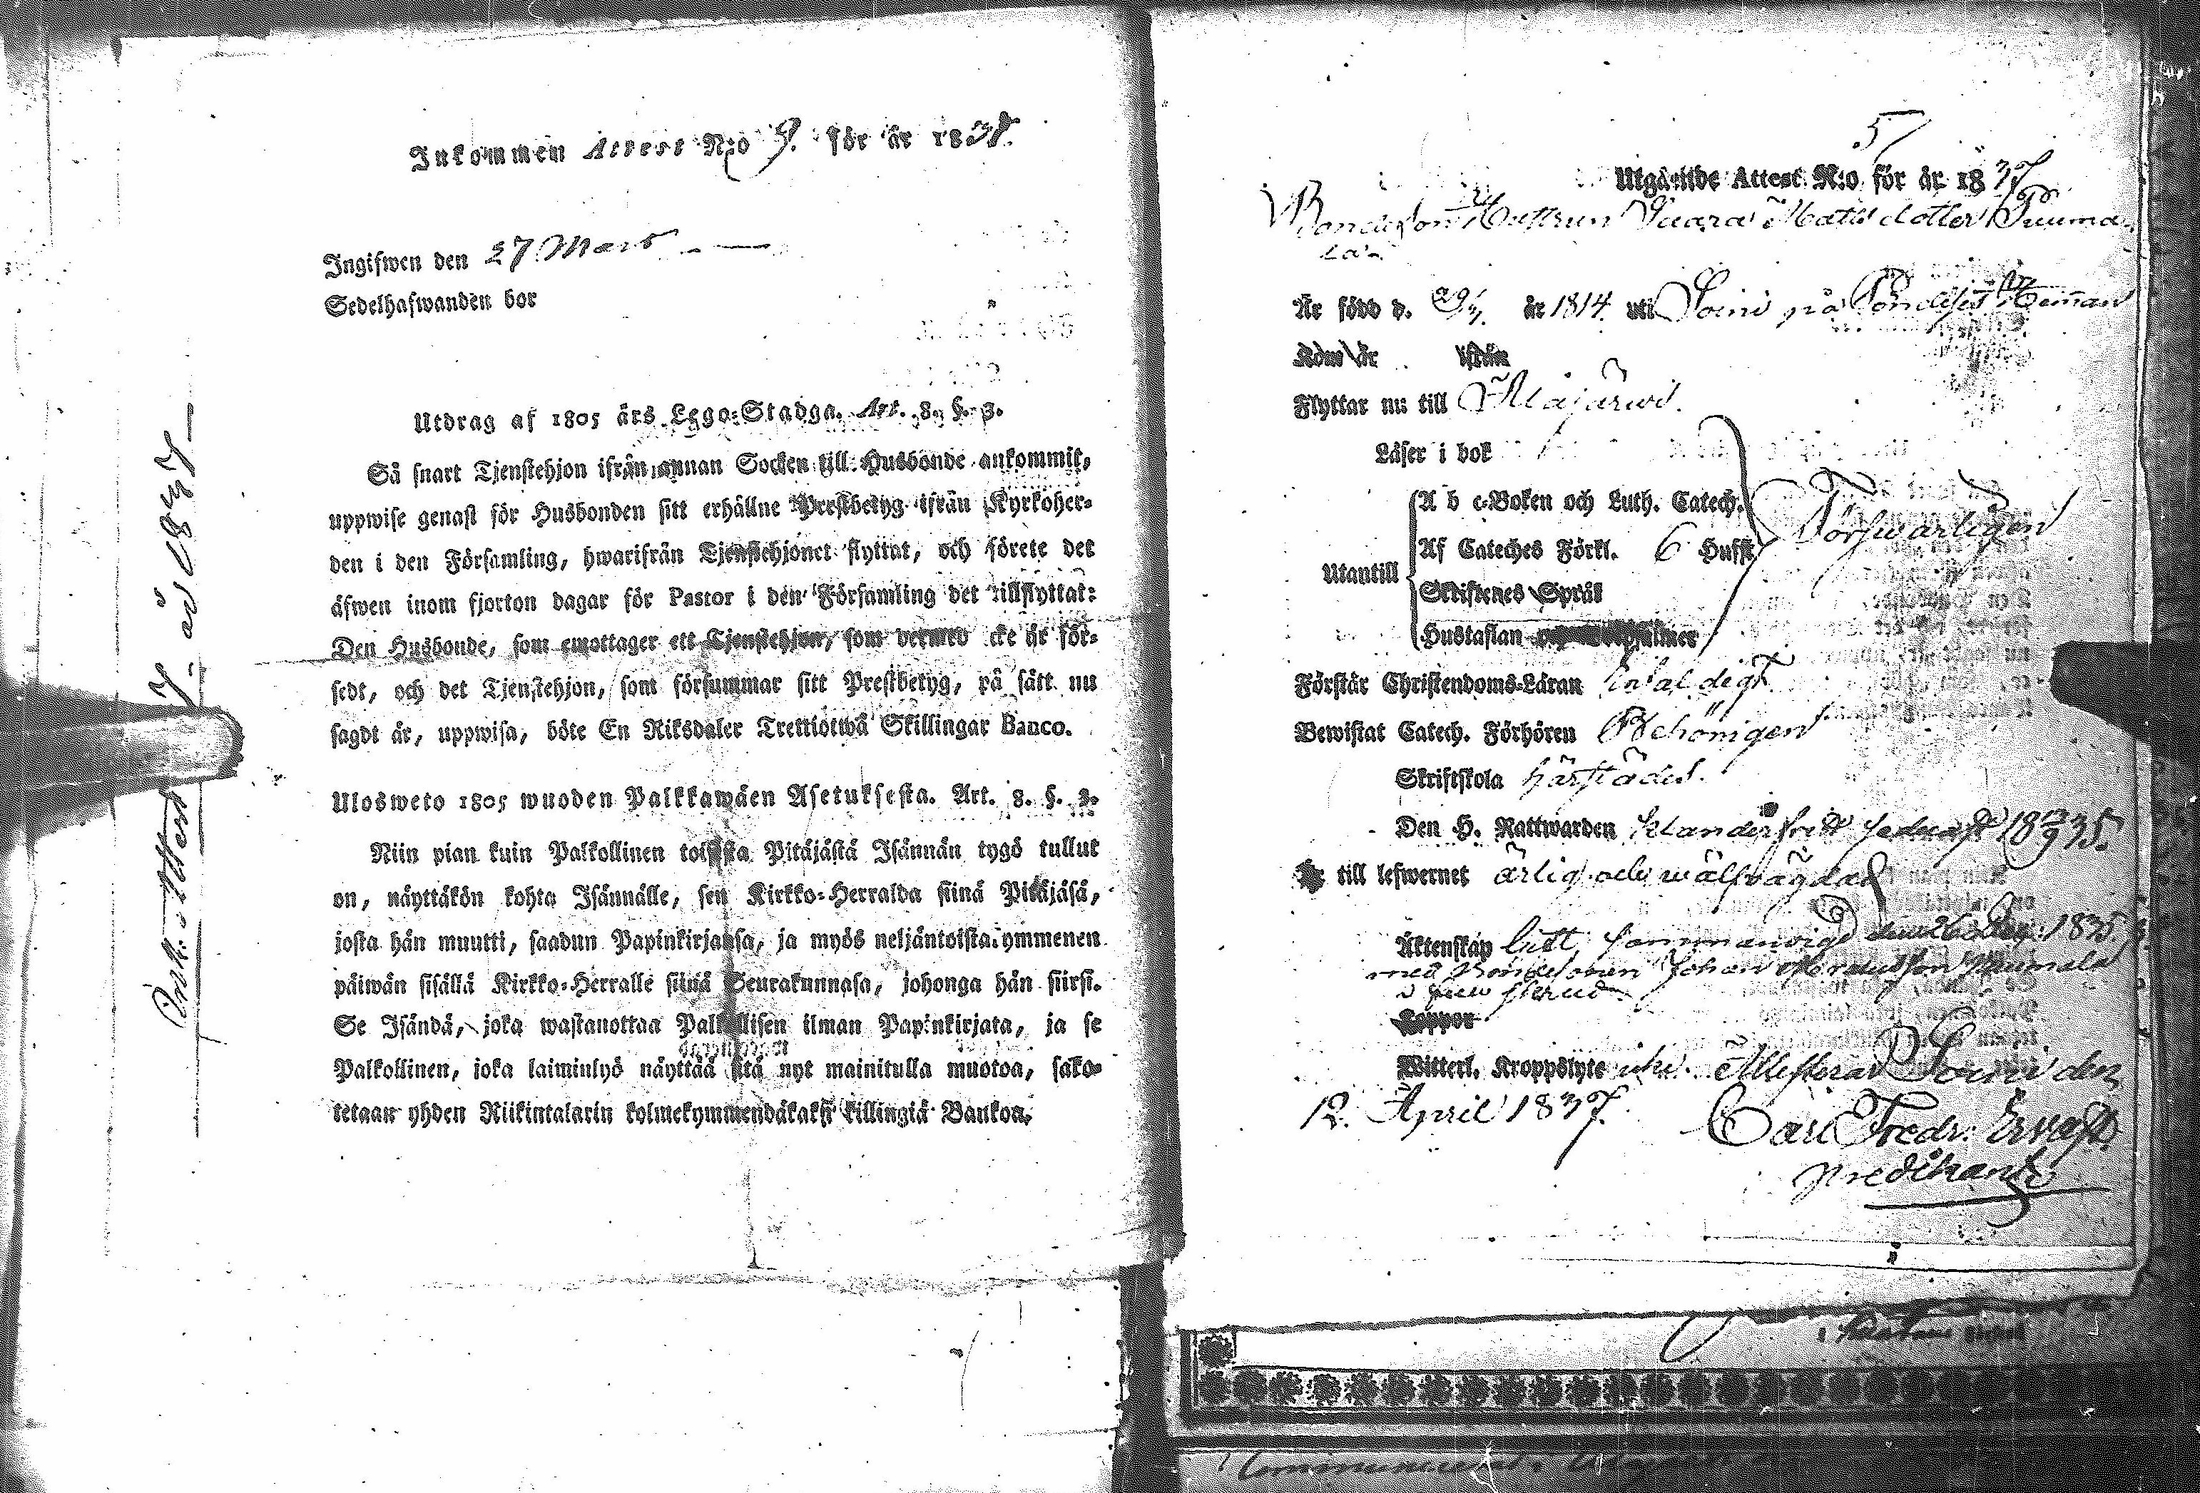 Inkommen Attest N:o 9. för år 1838.
Ingifwen den 27 Mars
Sedelhafwanden bor
Utdrag af 1805 års Lego-Stadga. Art. 8. §. 3.
Så snart Tjenstehjon ifrån annan Socken till Husbonde ankommit,
uppwise genast för Husbonden sitt erhållne Prestbetyg ifrån Kyrkoher-
den i den Församling, hwarifrån Tjenstehjonet flyttat, och förete det
äfwen inom fjorton dagar för Pastor i den Församling det tillflyttat:
Den Husbonde, som emottager ett Tjenstehjon, som dermed icke är för-
sedt, och det Tjenstehjon, som försummar sitt Prestbetyg, på sätt nu
sagdt är, uppwisa, böte En Riksdaler Trettiotwå Skillingar Banco.
Ulosweto 1805 wuoden Palkkawäen Asetuksesta. Art. 8. §. 3.
Niin pian kuin Palkollinen toisesta Pitäjästä Isännän tygö tullut
on, näyttäkön kohta Isännälle, sen Kirkko-Herralda siinä Pitäjäsä,
josta hän muutti, saadun Papinkirjansa, ja myös neljäntoistakymmenen
päiwän sisällä Kirkko-Herralle siinä Seurakunnasa, johonga hän siirsi.
Se Isändä, joka wastanottaa Palkollisen ilman Papinkirjata, ja se
Palkollinen, joka laiminlyö näyttää sitä nyt mainitulla muotoa, sako-
tetaan yhden Riikintalarin kolmekymmendäkaksi killingiä Bankoa.
Ink: Attest 7. år 1837
5
Utgående Attest N:o för år 1837
Bondeson Hustrun Saara Matsdotter Puuma
la
Är född d. 29/ år 1814 uti Soini på Hemman
Kom år ifrån
Flyttar nu till Alajärwi.
Läser i bok
A b c-Boken och Luth. Catech.
Af Cateches Förkl. 6 Hufst
Förswarligen
Utantill
Skriftenes Språk
Hustaflan
Förstår Christendoms-Läran
Bewistat Catech. Förhören Behörigen
Skriftskola härstädes.
Den H. Nattwarden 1835.
Är till lefwernet ärlig och wälfrägdad
Äktenskap sammanvigd den 26 1835
med Bondesonen Johan Puumala
Koppor
Witterl. Kroppslyte Attesterar Soini den
12. April 1837. Carl Fredr:
Predikant